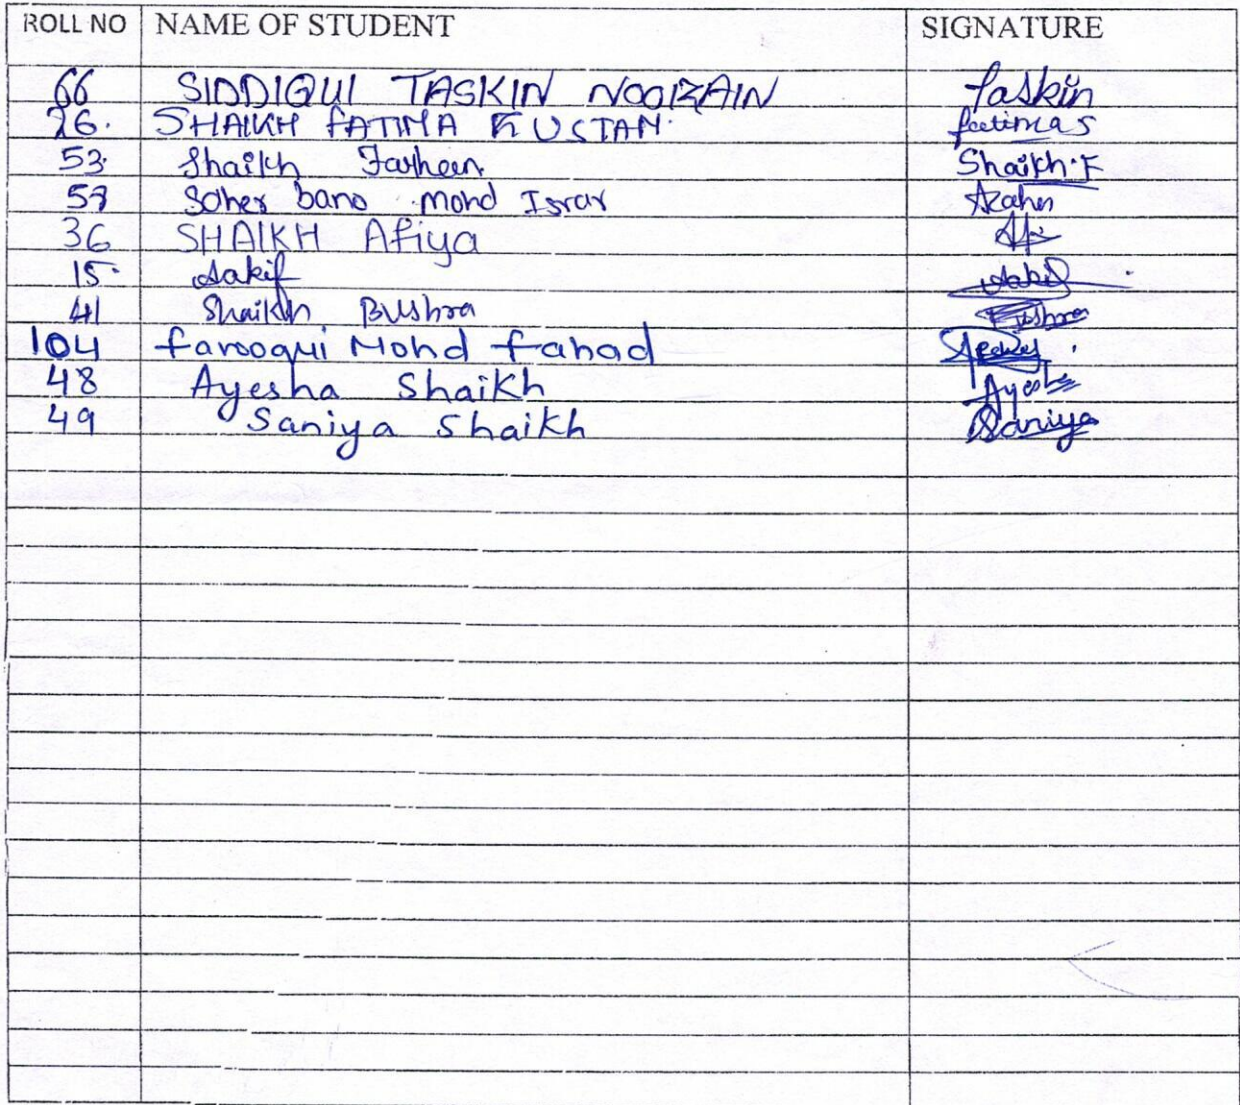 ROLL NO NAME OF STUDENT SIGNATURE
66 SIDDIQUI TASKIN NOORZAIN Taskin
26. SHAIKH FATIMA RUSTAM. fatima S
53. Shaikh Farheen Shaikh.F
57 Saher bano mohd Israr
36 SHAIKH Afiya
15. Aakif Aakif
41 Shaikh Bushra Bushra
104 farooqui Mohd fahad
48 Ayesha Shaikh Ayesha
49 Saniya Shaikh Saniya